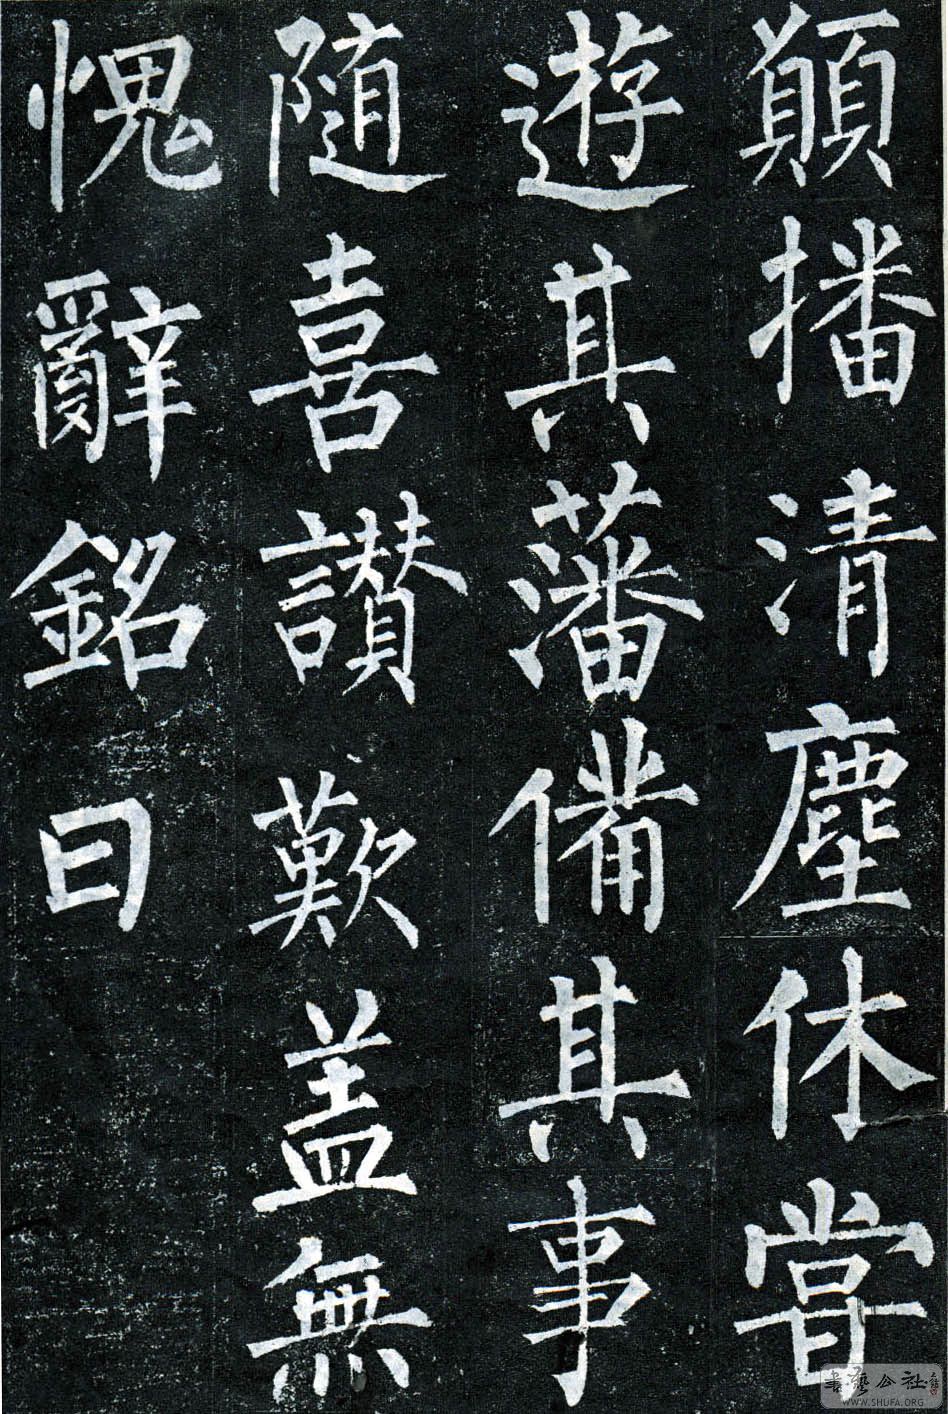 顛播清塵休甞
遊其藩備其事
隨喜讃歎盖無
愧辭銘曰
書藝公社
WWW.SHUFA.ORG